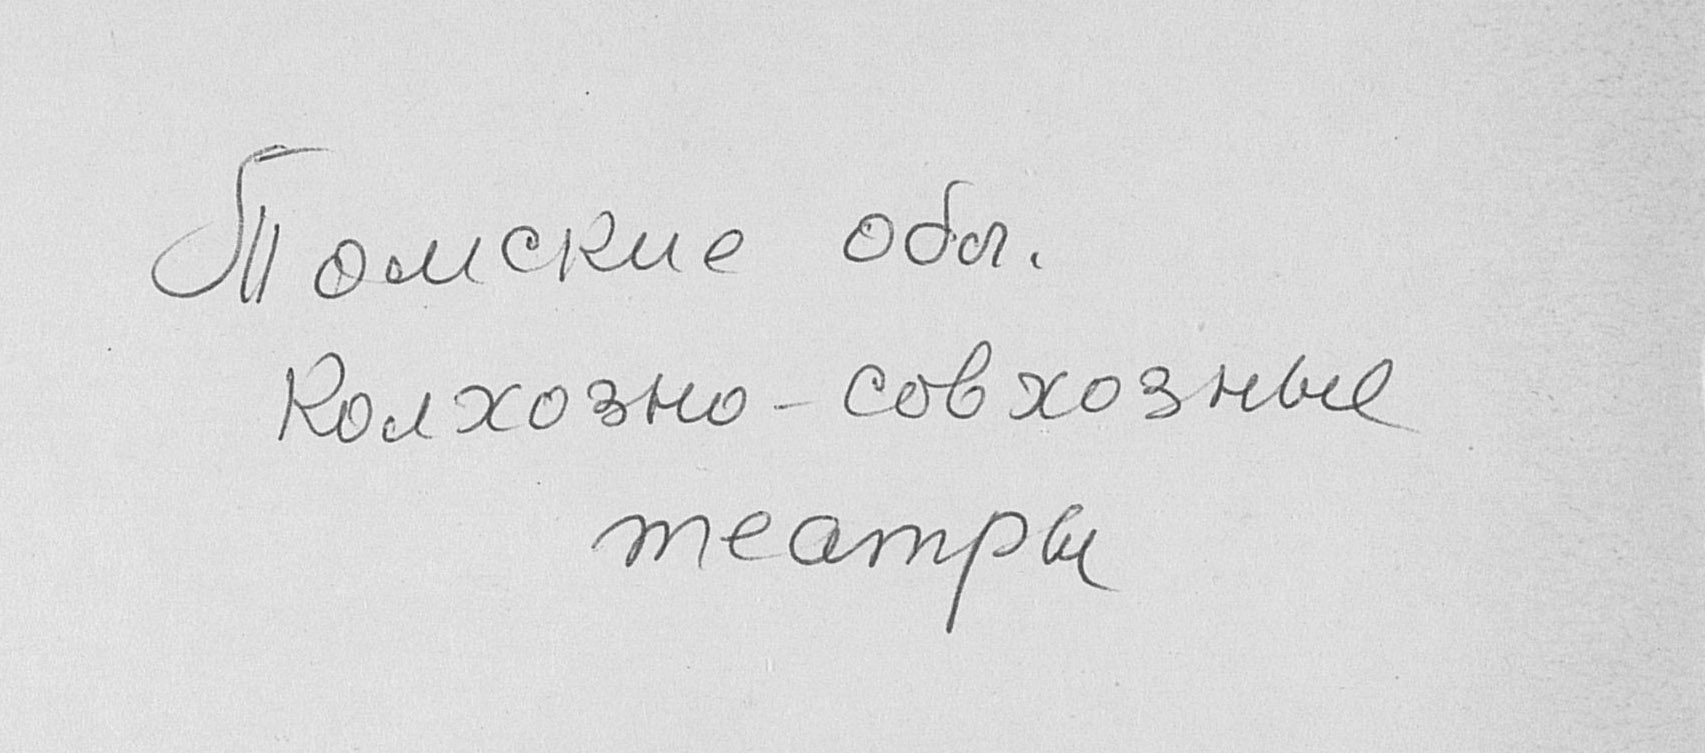 Томские обл.
Колхозно-совхозные
театры